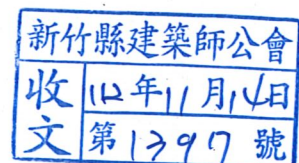 新竹縣建築師公會
收文
112年11月14日
第1397號